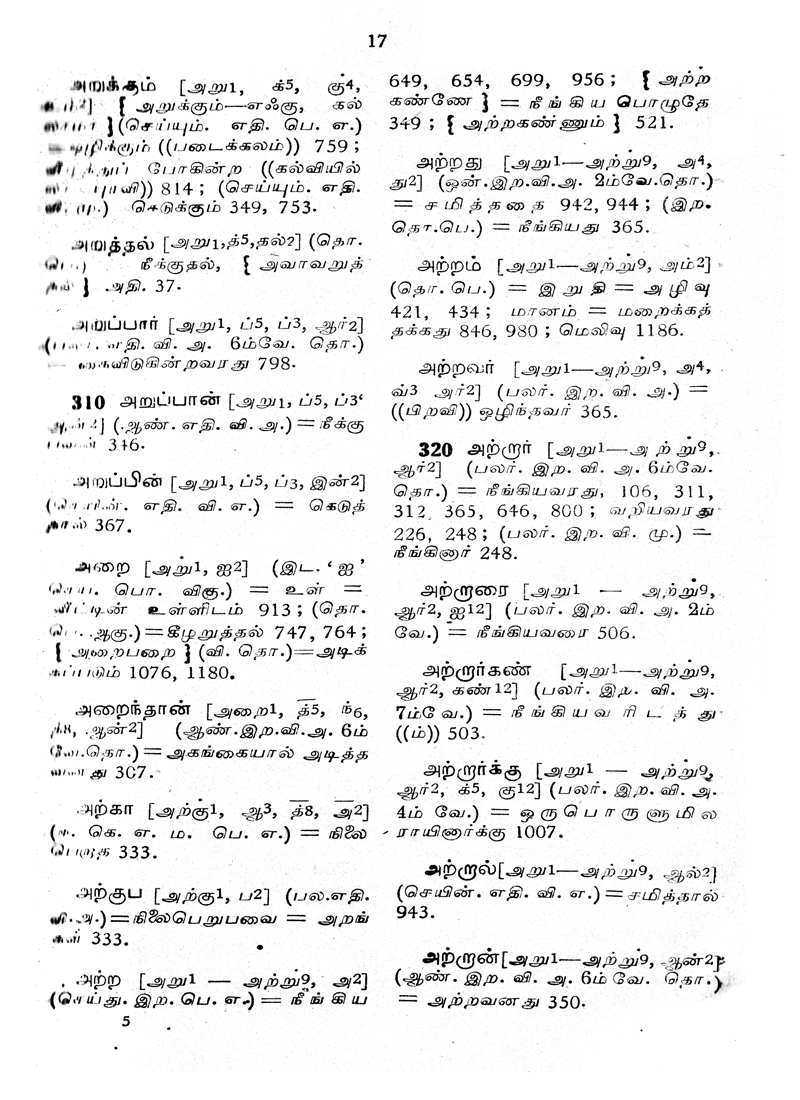 17
அறுக்கும் [அறு1, க்5, கு4,
{ அறுக்கும்—எஃகு, கல்
}(செய்யும். எதி. பெ. எ.)
((படைக்கலம்)) 759 ;
போகின்ற ((கல்வியில்
814 ; (செய்யும். எதி.
கெடுக்கும் 349, 753.
அறுத்தல் [அறு1,த்5,தல்2] (தொ.
நீக்குதல், { அவாவறுத்
} அதி. 37.
அறுப்பார் [அறு1, ப்5, ப்3, ஆர்2]
எதி. வி. அ. 6ம்வே. தொ.)
கைவிடுகின்றவரது 798.
310 அறுப்பான் [அறு1, ப்5, ப்3
(ஆண். எதி. வி. அ.) = நீக்கு
346.
அறுப்பின் [அறு1, ப்5, ப்3, இன்2]
எதி. வி. எ.) = கெடுத்
367.
அறை [அறு1, ஐ2] (இட. ‘ ஐ ’
பொ. விகு.) = உள் =
வீட்டின் உள்ளிடம் 913 ; (தொ.
ஆகு.) = கீழறுத்தல் 747, 764 ;
{ அறைபறை } (வி. தொ.)=அடிக்
கப்படும் 1076, 1180.
அறைந்தான் [அறை1, த்5, ந்6,
ஆன்2] (ஆண்.இற.வி.அ. 6ம்
வே.தொ.) = அகங்கையால் அடித்த
307.
அற்கா [அற்கு1, ஆ3, த்8, அ2]
கெ. எ. ம. பெ. எ.) = நிலை
பெறாத 333.
அற்குப [அற்கு1, ப2] (பல.எதி.
வி.அ.)=நிலைபெறுபவை = அறங்
கள் 333.
அற்ற [அறு1 — அற்று9, அ2]
(செய்து. இற. பெ. எ.) = நீங்கிய
5
649, 654, 699, 956 ; { அற்ற
கண்ணே } = நீங்கிய பொழுதே
349 ; { அற்றகண்ணும் } 521.
அற்றது [அறு1—அற்று9, அ4,
து2] (ஒன்.இற.வி.அ. 2ம்வே.தொ.)
= சமித்ததை 942, 944 ; (இற.
தொ.பெ.) = நீங்கியது 365.
அற்றம் [அறு1—அற்று9, அம்2]
(தொ. பெ.) = இறுதி = அழிவு
421, 434 ; மானம் = மறைக்கத்
தக்கது 846, 980 ; மெலிவு 1186.
அற்றவர் [அறு1—அற்று9, அ4,
வ்3 அர்2] (பலர். இற. வி. அ.) =
((பிறவி)) ஒழிந்தவர் 365.
320 அற்றார் [அறு1—அற்று9,
ஆர்2] (பலர். இற. வி. அ. 6ம்வே.
தொ.) = நீங்கியவரது, 106, 311,
312, 365, 646, 800 ; வறியவரது
226, 248 ; (பலர். இற. வி. மு.) =
நீங்கினார் 248.
அற்றாரை [அறு1 — அற்று9,
ஆர்2, ஐ12] (பலர். இற. வி. அ. 2ம்
வே.) = நீங்கியவரை 506.
அற்றார்கண் [அறு1—அற்று9,
ஆர்2, கண்12] (பலர். இற. வி. அ.
7ம்வே.) = நீங்கியவரிடத்து
((ம்)) 503.
அற்றார்க்கு [அறு1 — அற்று9,
ஆர்2, க்5, கு12] (பலர். இற. வி. அ.
4ம் வே.) = ஒருபொருளுமில
ராயினார்க்கு 1007.
அற்றால்[அறு1—அற்று9, ஆல்2]
(செயின். எதி. வி. எ.) = சமித்தால்
943.
அற்றான்[அறு1—அற்று9, ஆன்2]
(ஆண். இற. வி. அ. 6ம் வே. தொ.)
= அற்றவனது 350.